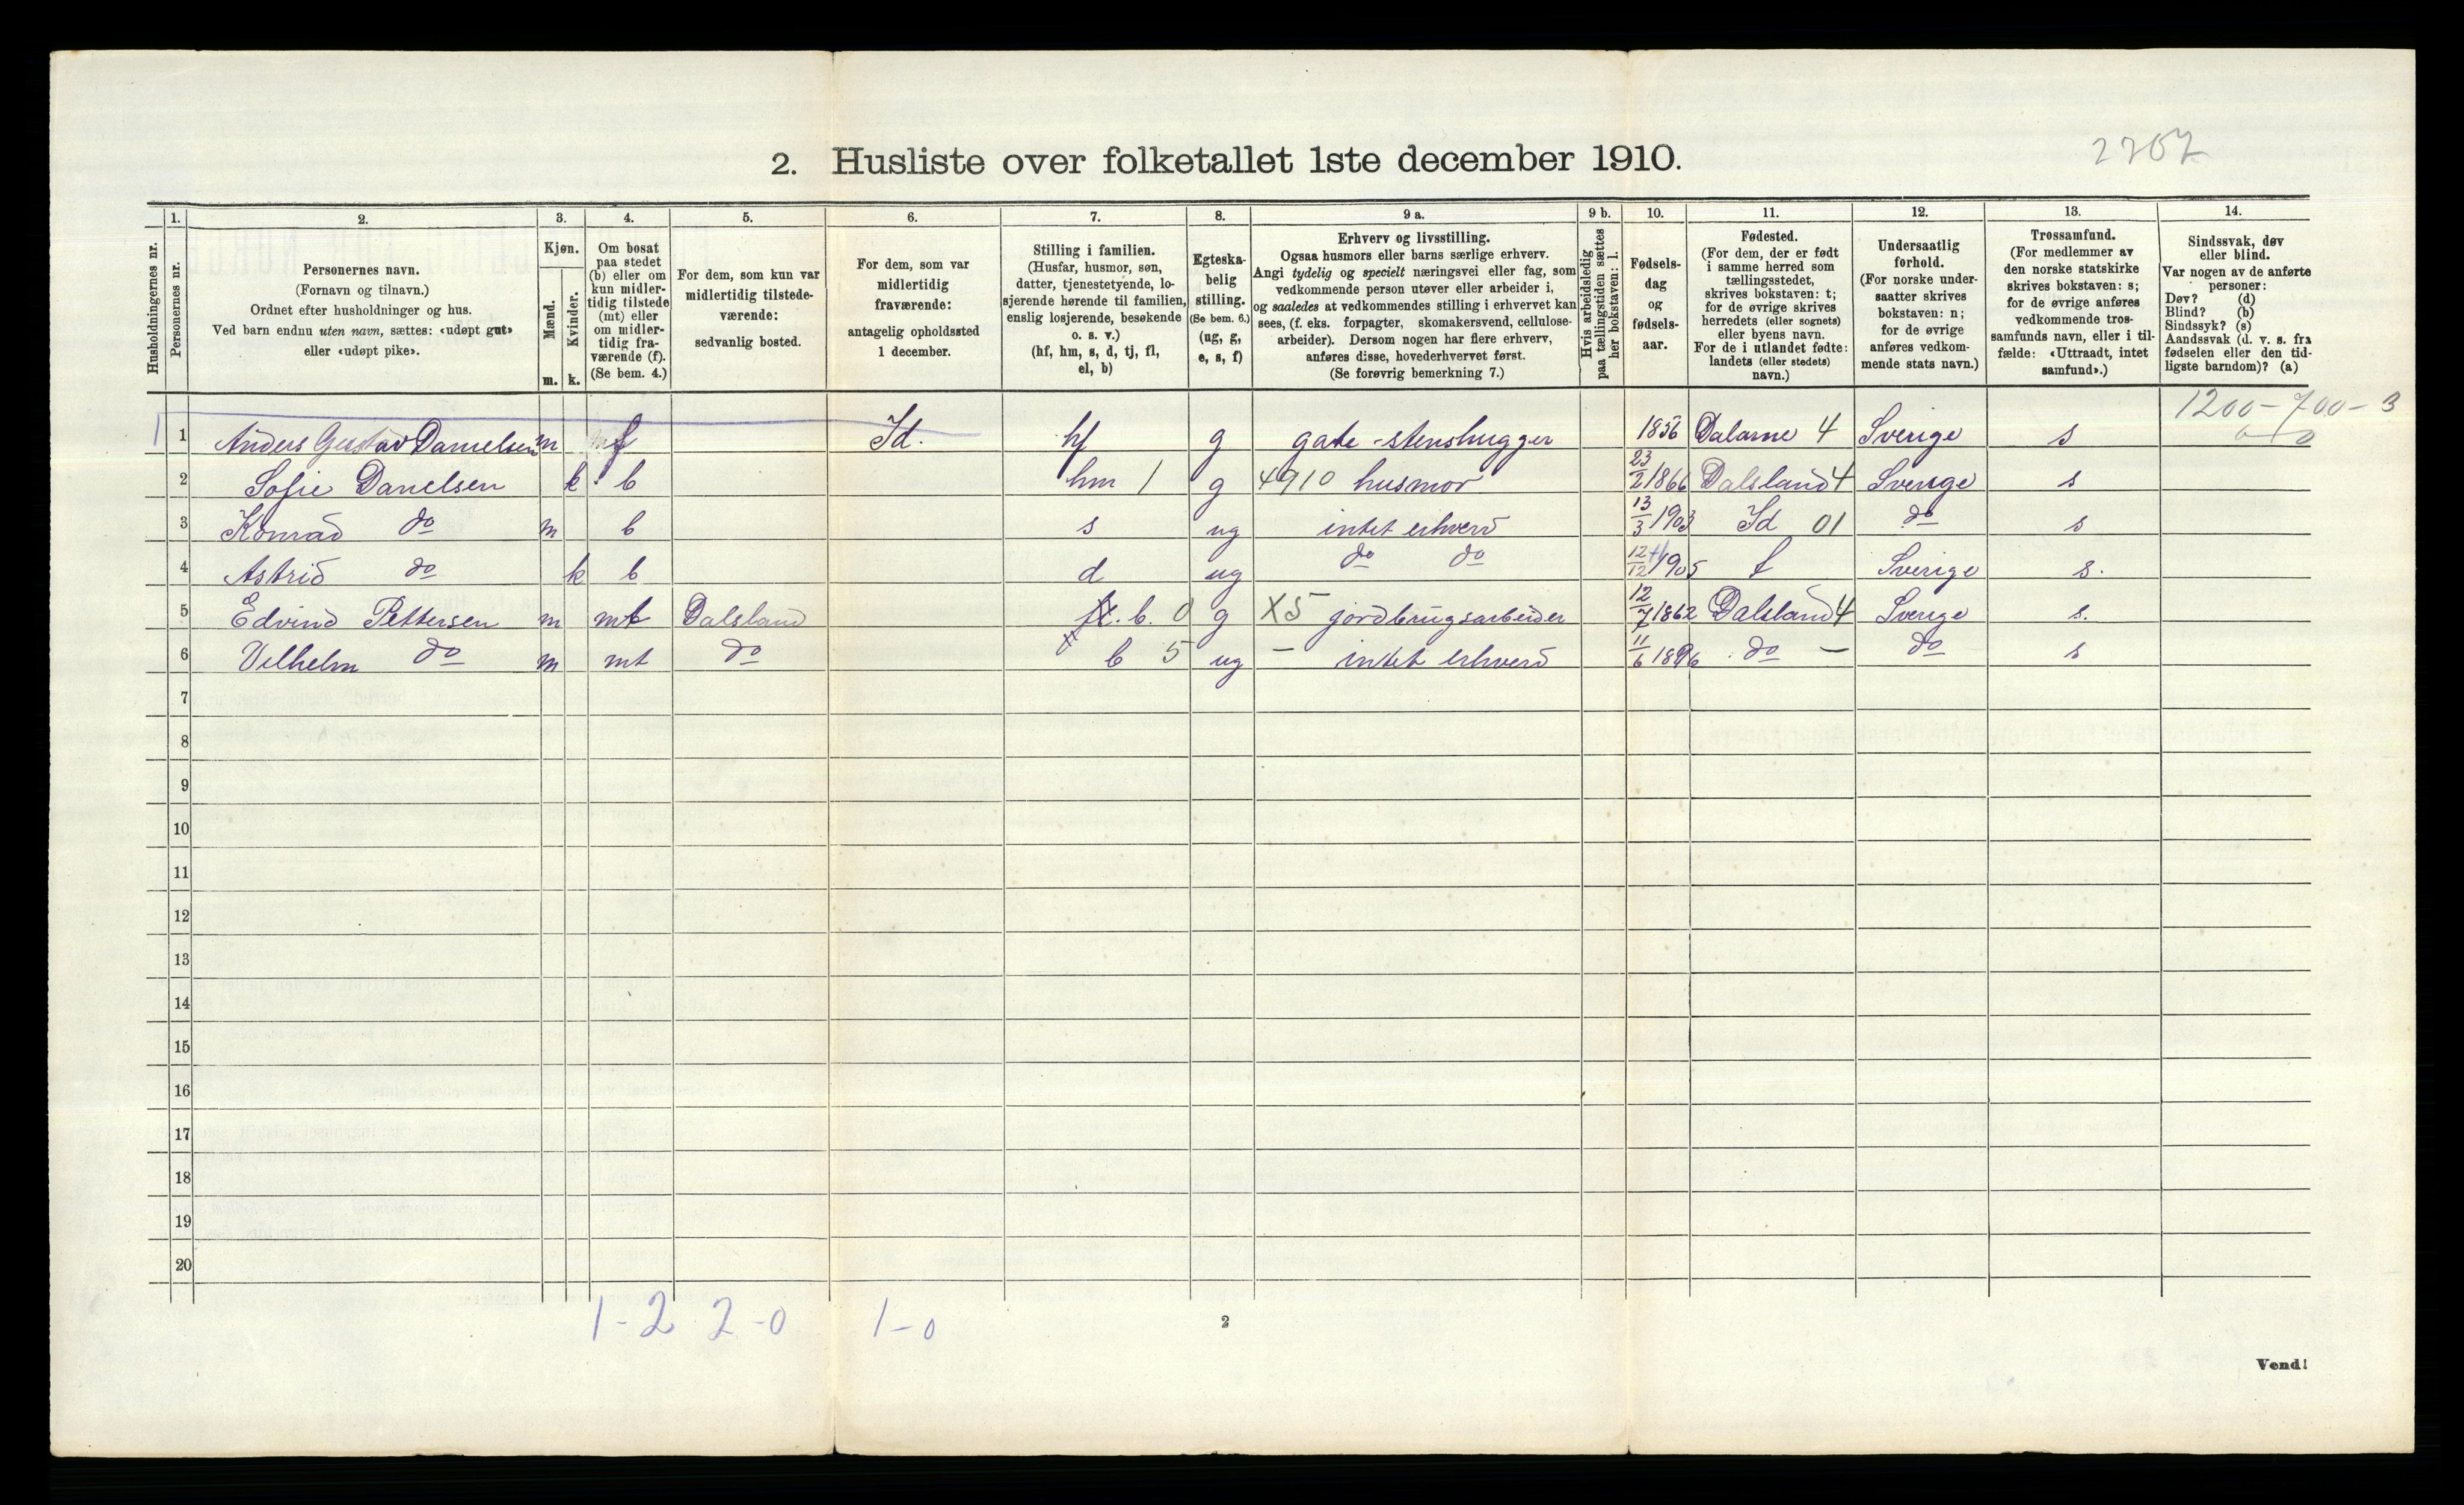 2. Husliste over folketallet 1ste december 1910.
2207
Husholdningernes nr.
1. Personernes nr.
2. Personernes navn. (Fornavn og tilnavn.) Ordnet efter husholdninger og hus. Ved barn endnu uten navn, sættes: «udøpt gut» eller «udøpt pike».
3. Kjøn. Mænd. m. Kvinder. k.
4. Om bosat paa stedet (b) eller om kun midler-tidig tilstede (mt) eller om midler-tidig fra-værende (f). (Se bem. 4.)
5. For dem, som kun var midlertidig tilstede-værende: sedvanlig bosted.
6. For dem, som var midlertidig fraværende: antagelig opholdssted 1 december.
7. Stilling i familien. (Husfar, husmor, søn, datter, tjenestetyende, lo-sjerende hørende til familien, enslig losjerende, besøkende o. s. v.) (hf, hm, s, d, tj, fl, el, b)
8. Egteska-belig stilling. (Se bem. 6.) (ug, g, e, s, f)
9 a. Erhverv og livsstilling. Ogsaa husmors eller barns særlige erhverv. Angi tydelig og specielt næringsvei eller fag, som vedkommende person utøver eller arbeider i, og saaledes at vedkommendes stilling i erhvervet kan sees, (f. eks. forpagter, skomakersvend, cellulose-arbeider). Dersom nogen har flere erhverv, anføres disse, hovederhvervet først. (Se forøvrig bemerkning 7.)
9 b. Hvis arbeidsledig paa tællingstiden sættes her bokstaven: l.
10. Fødsels-dag og fødsels-aar.
11. Fødested. (For dem, der er født i samme herred som tællingsstedet, skrives bokstaven: t; for de øvrige skrives herredets (eller sognets) eller byens navn. For de i utlandet fødte: landets (eller stedets) navn.)
12. Undersaatlig forhold. (For norske under-saatter skrives bokstaven: n; for de øvrige anføres vedkom-mende stats navn.)
13. Trossamfund. (For medlemmer av den norske statskirke skrives bokstaven: s; for de øvrige anføres vedkommende tros-samfunds navn, eller i til-fælde: «Uttraadt, intet samfund».)
14. Sindssvak, døv eller blind. Var nogen av de anførte personer: Døv? (d) Blind? (b) Sindssyk? (s) Aandssvak (d. v. s. fra fødselen eller den tid-ligste barndom)? (a)
1200-700-3
0-0
1 1 Anders Gustav Danielsen m f Id. hf g gate-stenshugger 1856 Dalarne 4 Sverige s
2 Sofie Danelsen k b hm 1 g 4910 husmor 23/2 1866 Dalsland 4 Sverige s
3 Konrad do m b s ug intet erhverv 13/3 1903 Id 01 do s
4 Astrid do k b d ug do do 12/12 1905 t Sverige s.
5 Edvind Pettersen m mt Dalsland b. 0 g X5 jordbrugsarbeider 12/7 1862 Dalsland 4 Sverige s.
6 Vilhelm do m mt do b 5 ug - intet erhverv 11/6 1896 do - do s
7
8
9
10
11
12
13
14
15
16
17
18
19
20
1-2 2-0 1-0
2
Vend!